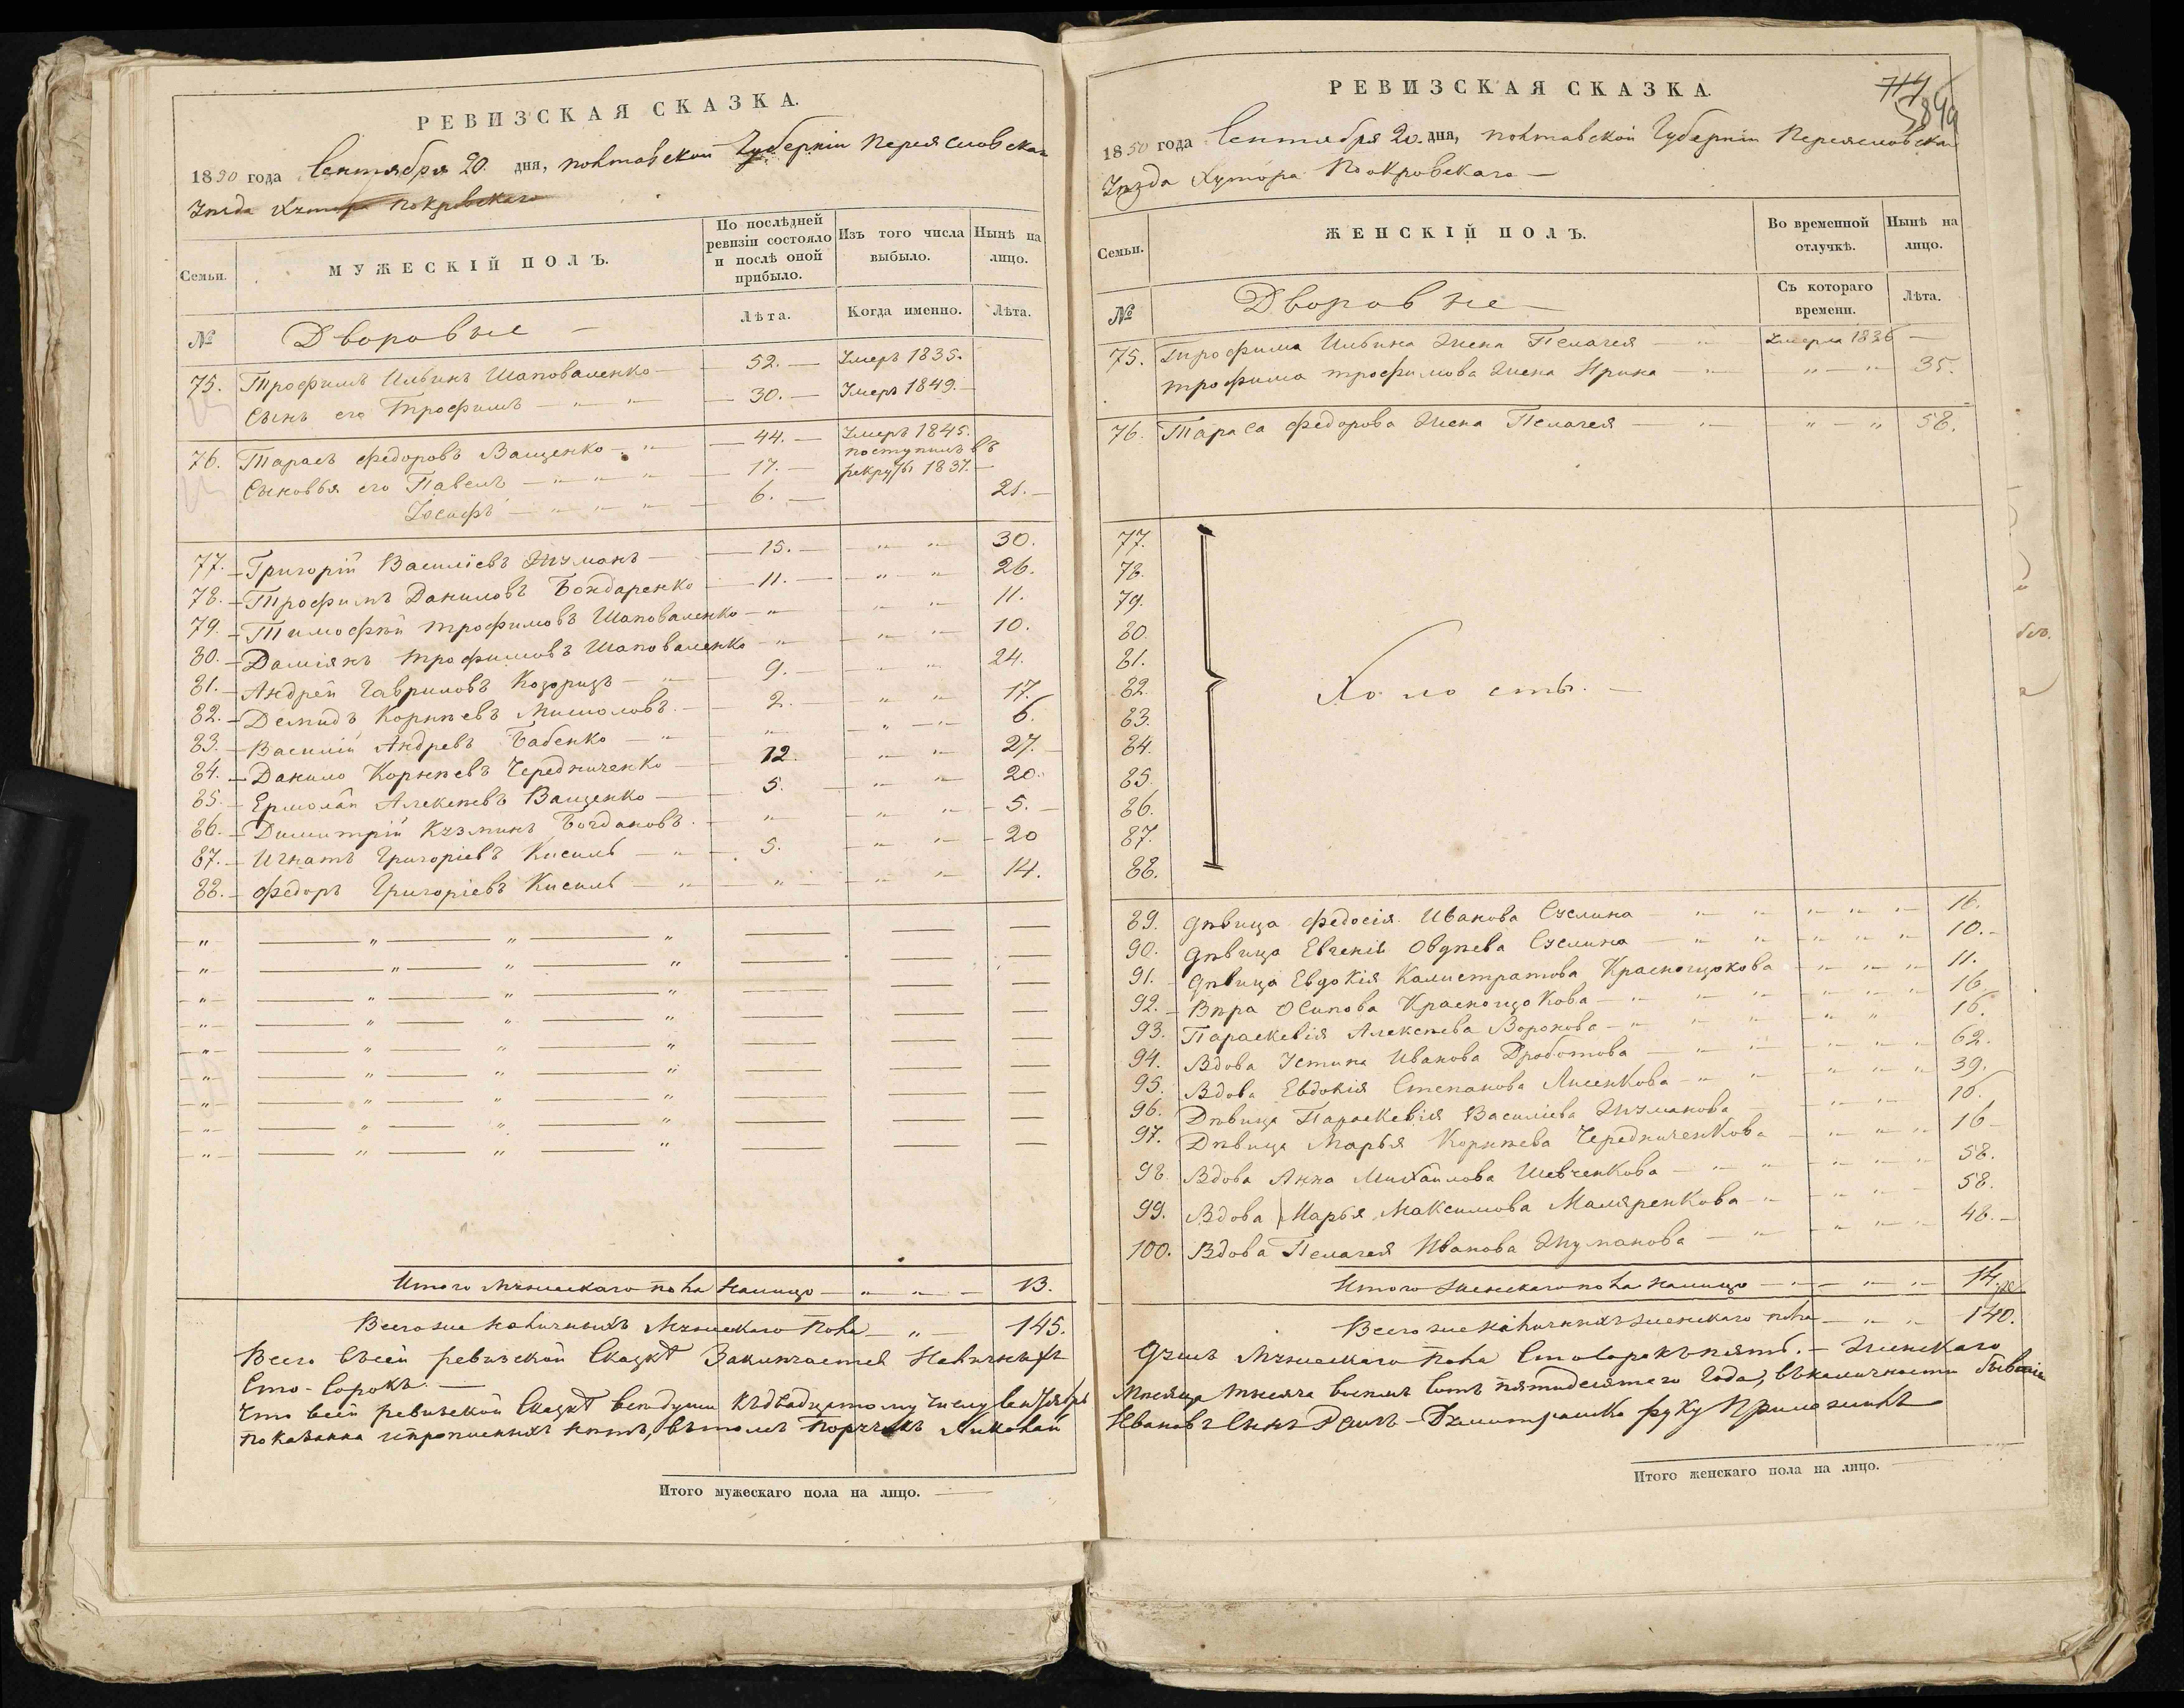 РЕВИЗСКАЯ СКАЗКА.
1850 года Сентября 20. дня, Полтавской Губерніи Переясловскаго
Уѣзда Хутора Покровскаго
Семьи.
МУЖЕСКІЙ ПОЛЪ.
По послѣдней ревизіи состояло и послѣ оной прибыло.
Изъ того числа выбыло.
Нынѣ на лицо.
№ Дворовые Лѣта. Когда именно. Лѣта.
75. Трофимъ Ильинъ Шаповаленко 52. Умеръ 1835.
Сынъ его Трофимъ 30. Умеръ 1849.
76. Тарасъ Федоровъ Ващенко 44. Умеръ 1845.
Сыновья его Павелъ 17. поступилъ въ рекруты 1837.
Іосифъ 6. 21.
77. Григорій Василіевъ Жуманъ 15. 30.
78. Трофимъ Даниловъ Бондаренко 11. 26.
79. Тимофѣй Трофимовъ Шаповаленко 11.
80. Даміянъ Трофимовъ Шаповаленко 10.
81. Андрей Гавриловъ Козоризъ 9. 24.
82. Демидъ Корнѣевъ Мишоловъ 2. 17.
83. Василій Андревъ Бабенко 6.
84. Данило Корнѣевъ Чередниченко 12. 27.
85. Ермолай Алексѣевъ Ващенко 5. 20.
86. Димитрій Кузминъ Богдановъ 5.
87. Игнатъ Григоріевъ Кисиль 5. 20
88. Федоръ Григоріевъ Кисиль 14.
Итого Мужескаго пола налицо 13.
Всего же наличныхъ Мужескаго пола 145.
Всего в сей ревизской Сказкѣ Заключается Наличныхъ
Сто-Сорокъ.
Что всей ревизской Сказкѣ всѣ души къ двадцатому числу Сентября
показанна и прописныхъ нѣтъ, въ томъ Поручикъ Николай
Итого мужескаго пола на лицо.
РЕВИЗСКАЯ СКАЗКА.
714
1850 года Сентября 20. дня, Полтавской Губерніи Переясловскаго
Уѣзда Хутора Покровскаго
Семьи.
ЖЕНСКІЙ ПОЛЪ.
Во временной отлучкѣ.
Нынѣ на лицо.
№ Дворовые Съ котораго времени. Лѣта.
75. Трофима Ильина Жена Пелагея Умерла 1836
Трофима Трофимова Жена Ирина 35.
76. Тараса Федорова Жена Пелагея 58.
77.
78.
79.
80.
81.
82. Холосты.
83.
84.
85.
86.
87.
88.
89. дѣвица Федосія Иванова Суслина 16.
90. дѣвица Евгенія Овдѣева Суслина 10.
91. дѣвица Евдокія Калистратова Краснощокова 11.
92. Вѣра Осипова Краснощокова 16.
93. Параскевія Алексѣева Воронова 16.
94. Вдова Устина Иванова Дроботова 62.
95. Вдова Евдокія Степанова Лисенкова 39.
96. Дѣвица Параскевія Василіева Жуманова 16.
97. Дѣвица Марья Корнѣева Чередниченкова 16
98 Вдова Анна Михайлова Шевченкова 58.
99. Вдова Марья Максимова Маляренкова 58.
100. Вдова Пелагея Иванова Жуманова 48.
Итого Женскаго пола налицо 14.
Всего же наличныхъ женскаго пола 140.
душъ Мужескаго пола Сто сорокъ пять. Женскаго
Мѣсяца тысяча восемь сотъ пятидесятаго Года, въ наличности бывшіе
Ивановъ Сынъ Дмитрашко руку приложилъ
Итого женскаго пола на лицо.